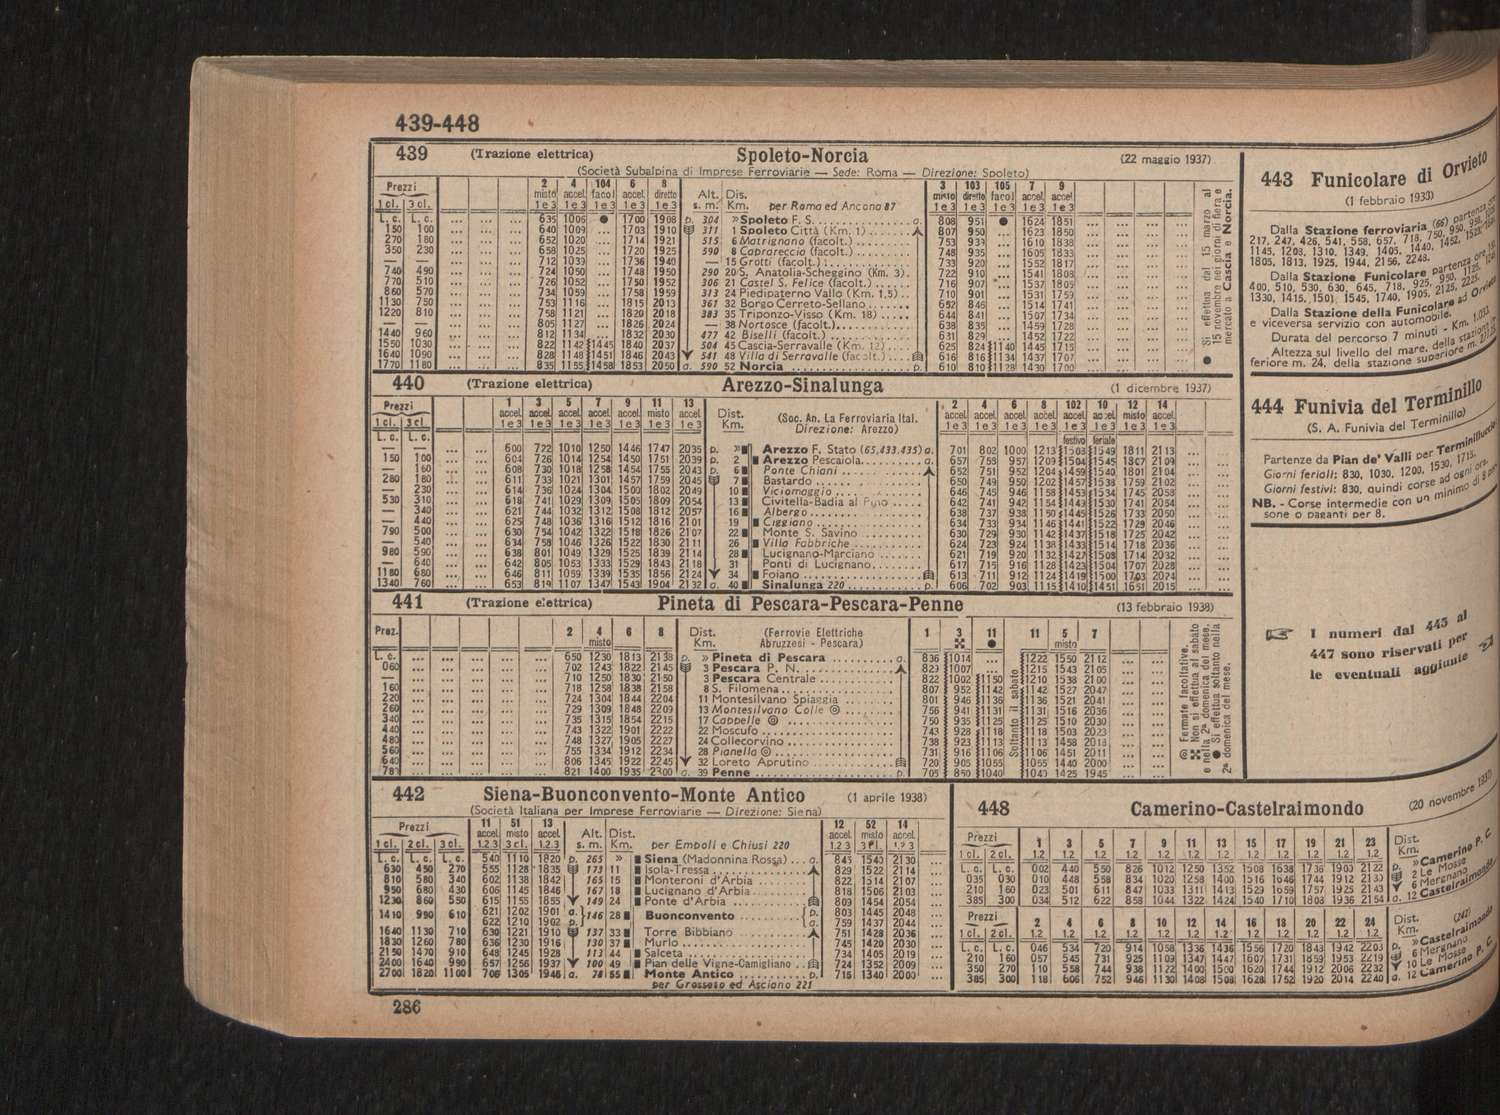 439-448
439 (Trazione elettrica) Spoleto-Norcia (22 maggio 1937)
(Società Subalpina di Imprese Ferroviarie — Sede: Roma — Direzione: Spoleto)
Prezzi 2 4 104 6 8 Alt. Dis. 3 103 105 7 9
1 cl. 3 cl. misto accel. facol accel. diretto s. m. Km. per Roma ed Ancona 87 misto diretto facol accel. accel.
1 e 3 1 e 3 1 e 3 1 e 3 1 e 3 1 e 3 1 e 3 1 e 3 1 e 3 1 e 3
L. c. L. c. 635 1006 ● 1700 1908 p. 304 » Spoleto F. S. a. 808 951 ● 1624 1851
150 100 640 1009 ... 1703 1910 311 1 Spoleto Città (Km. 1) 807 950 ... 1623 1850
270 180 652 1020 ... 1714 1921 515 6 Matrignano (facolt.) 753 939 ... 1610 1838
350 230 658 1025 ... 1720 1925 590 8 Caprareccia (facolt.) 748 935 ... 1605 1833
— — 712 1039 ... 1736 1940 — 15 Grotti (facolt.) 733 920 ... 1552 1817
740 490 724 1050 ... 1748 1950 290 20 S. Anatolia-Scheggino (Km. 3) 722 910 ... 1541 1808
770 510 726 1052 ... 1750 1952 306 21 Castel S. Felice (facolt.) 716 907 ... 1537 1805
860 570 734 1059 ... 1758 1959 313 24 Piedipaterno Vallo (Km. 1,5) 710 901 ... 1531 1759
1130 750 753 1116 ... 1815 2013 361 32 Borgo Cerreto-Sellano 652 846 ... 1514 1741
1220 810 758 1121 ... 1820 2018 383 35 Triponzo-Visso (Km. 18) 644 841 ... 1507 1734
— — 805 1127 ... 1826 2024 — 38 Nortosce (facolt.) 638 835 ... 1459 1728
1440 960 812 1134 ... 1832 2030 477 42 Biselli (facolt.) 631 829 ... 1452 1722
1550 1030 822 1142 1445 1840 2037 504 45 Cascia-Serravalle (Km. 12) 625 824 1140 1445 1715
1640 1090 828 1148 1451 1846 2043 541 48 Villa di Serravalle (facolt.) 616 816 1134 1437 1707
1770 1180 835 1155 1458 1853 2050 a. 590 52 Norcia p. 610 810 1128 1430 1700
● Si effettua dal 15 marzo al 15 novembre nei giorni di fiera e mercato a Cascia e Norcia.
440 (Trazione elettrica) Arezzo-Sinalunga (1 dicembre 1937)
Prezzi 1 3 5 7 9 11 13 Dist. (Soc. An. La Ferroviaria Ital. 2 4 6 8 102 10 12 14
1 cl. 3 cl. accel. accel. accel. accel. accel. misto accel. Km. Direzione: Arezzo) accel. accel. accel. accel. accel. accel. misto accel.
1 e 3 1 e 3 1 e 3 1 e 3 1 e 3 1 e 3 1 e 3 1 e 3 1 e 3 1 e 3 1 e 3 1 e 3 1 e 3 1 e 3 1 e 3
L. c. L. c. festivo feriale
— — 600 722 1010 1250 1446 1747 2035 p. » Arezzo F. Stato (65,433,435) a. 701 802 1000 1213 1508 1549 1811 2113
150 100 604 726 1014 1254 1450 1751 2039 p. 2 Arezzo Pescaiola a. 657 759 957 1209 1504 1545 1807 2109
— 160 608 730 1018 1258 1454 1755 2043 p. 6 Ponte Chiani 652 751 952 1204 1459 1540 1801 2104
280 180 611 733 1021 1301 1457 1759 2045 7 Bastardo 650 749 950 1202 1457 1538 1759 2102
— 230 614 736 1024 1304 1500 1802 2049 10 Viciomaggio 646 745 946 1158 1453 1534 1745 2058
530 310 618 741 1029 1309 1505 1809 2054 13 Civitella-Badia al Pino 642 741 942 1154 1449 1530 1741 2054
— 340 621 744 1032 1312 1508 1812 2057 16 Albergo 638 737 938 1150 1445 1526 1733 2050
— 440 625 748 1036 1316 1512 1816 2101 19 Ciggiano 634 733 934 1146 1441 1522 1729 2046
790 500 630 754 1042 1322 1518 1826 2107 22 Monte S. Savino 630 729 930 1142 1437 1518 1725 2042
— 540 634 758 1046 1326 1522 1830 2111 26 Villa Fabbriche 624 723 924 1138 1433 1514 1718 2036
980 590 638 801 1049 1329 1525 1839 2114 28 Lucignano-Marciano 621 719 920 1132 1427 1508 1714 2032
— 640 642 805 1053 1333 1529 1843 2118 31 Ponti di Lucignano 617 715 916 1128 1423 1504 1707 2028
1180 680 646 811 1059 1339 1535 1856 2124 34 Foiano 613 711 912 1124 1419 1500 1703 2024
1340 760 653 819 1107 1347 1543 1904 2132 a. 40 Sinalunga 220 p. 606 702 903 1115 1410 1451 1651 2015
441 (Trazione elettrica) Pineta di Pescara-Pescara-Penne (13 febbraio 1938)
Prez. 2 4 6 8 Dist. (Ferrovie Elettriche 1 3 11 11 5 7
misto Km. Abruzzesi - Pescara) ● misto
L. c. 650 1230 1813 2138 p. » Pineta di Pescara a. 836 1014 ... 1222 1550 2112
060 702 1243 1822 2145 3 Pescara P. N. 823 1007 ... 1215 1543 2105
— 710 1250 1830 2150 3 Pescara Centrale 822 1002 1150 1210 1538 2100
160 718 1258 1838 2158 8 S. Filomena 807 952 1142 1142 1527 2047
220 724 1304 1844 2204 11 Montesilvano Spiaggia 801 946 1136 1136 1521 2041
260 729 1309 1848 2209 13 Montesilvano Colle 756 941 1131 1131 1516 2036
340 735 1315 1854 2215 17 Cappelle 750 935 1125 1125 1510 2030
440 743 1322 1901 2222 22 Moscufo 743 928 1118 1118 1503 2023
480 748 1327 1905 2227 24 Collecorvino 738 923 1113 1113 1458 2018
560 755 1334 1912 2234 28 Pianella 731 916 1106 1106 1451 2011
640 806 1345 1922 2245 32 Loreto Aprutino 720 905 1055 1055 1440 2000
780 821 1400 1935 2300 a. 39 Penne p. 705 850 1040 1040 1425 1945
Soltanto il sabato
Fermate facoltative.
Non si effettua al sabato e nella 2ª domenica del mese.
● Si effettua soltanto nella 2ª domenica del mese.
442 Siena-Buonconvento-Monte Antico (1 aprile 1938)
(Società Italiana per Imprese Ferroviarie — Direzione: Siena)
Prezzi 11 51 13 Alt. Dist. 12 52 14
1 cl. 2 cl. 3 cl. accel. misto accel. s. m. Km. per Empoli e Chiusi 220 accel. misto accel.
1.2 3 3 cl. 1.2 3 1.2 3 3 cl. 1.2 3
L. c. L. c. L. c. 540 1110 1820 p. 265 » Siena (Madonnina Rossa) a. 845 1540 2130
630 450 270 555 1128 1835 173 11 Isola-Tressa 829 1522 2114
810 580 340 602 1138 1842 165 15 Monteroni d'Arbia 822 1514 2107
950 680 430 606 1145 1846 167 18 Lucignano d'Arbia 818 1506 2103
1230 860 550 615 1155 1855 149 24 Ponte d'Arbia 809 1454 2054
1410 990 610 621 1202 1901 a. 146 28 Buonconvento p. 803 1445 2048
622 1210 1902 p. a. 759 1437 2044
1640 1130 710 630 1221 1910 137 33 Torre Bibbiano 751 1428 2036
1830 1260 780 636 1230 1916 130 37 Murlo 745 1420 2030
2150 1470 910 648 1245 1928 113 44 Salceta 734 1405 2019
2400 1640 990 657 1256 1937 100 49 Pian delle Vigne-Camigliano 724 1352 2009
2700 1820 1100 706 1305 1946 a. 78 55 Monte Antico p. 715 1340 2000
per Grosseto ed Asciano 221
443 Funicolare di Orvieto
(1 febbraio 1933)
Dalla Stazione ferroviaria (66) partenza ore
217, 247, 426, 541, 558, 657, 718, 750, 950,
1145, 1203, 1310, 1349, 1405, 1440, 1452,
1805, 1813, 1925, 1944, 2156, 2248.
Dalla Stazione Funicolare partenza ore
400, 510, 530, 630, 645, 718, 925, 950, 1125,
1330, 1415, 1501, 1545, 1740, 1905, 2125, 2225.
Dalla Stazione della Funicolare ad Orvieto
e viceversa servizio con automobile.
Durata del percorso 7 minuti - Km. 1,033
Altezza sul livello del mare, della stazione
feriore m. 24, della stazione superiore m.
444 Funivia del Terminillo
(S. A. Funivia del Terminillo)
Partenze da Pian de' Valli per Terminilluccio
Giorni feriali: 830, 1030, 1200, 1530, 1715.
Giorni festivi: 830, quindi corse ad ogni ora.
NB. - Corse intermedie con un minimo di 8 per-
sone o paganti per 8.
I numeri dal 445 al
447 sono riservati per
le eventuali aggiunte
448 Camerino-Castelraimondo (20 novembre 1937)
Prezzi 1 3 5 7 9 11 13 15 17 19 21 23 Dist.
1 cl. 2 cl. 1.2 1.2 1.2 1.2 1.2 1.2 1.2 1.2 1.2 1.2 1.2 1.2 Km.
L. c. L. c. 002 440 550 826 1012 1250 1352 1508 1638 1736 1900 2122 p. » Camerino P. C.
035 030 010 448 558 834 1020 1258 1400 1516 1646 1744 1912 2130 2 Le Mosse
210 160 023 501 611 847 1033 1311 1413 1529 1659 1757 1925 2143 6 Mergnano
385 300 034 512 622 858 1044 1322 1424 1540 1710 1808 1936 2154 a. 12 Castelraimondo
Prezzi 2 4 6 8 10 12 14 16 18 20 22 24 Dist. (242)
1 cl. 2 cl. 1.2 1.2 1.2 1.2 1.2 1.2 1.2 1.2 1.2 1.2 1.2 1.2 Km.
L. c. L. c. 046 534 720 914 1058 1336 1436 1556 1720 1843 1942 2203 p. » Castelraimondo
210 160 057 545 731 925 1109 1347 1447 1607 1731 1859 1953 2219 6 Mergnano
350 270 110 558 744 938 1122 1400 1500 1620 1744 1912 2006 2232 10 Le Mosse
385 300 118 606 752 946 1130 1408 1508 1628 1752 1920 2014 2240 a. 12 Camerino P. C.
286